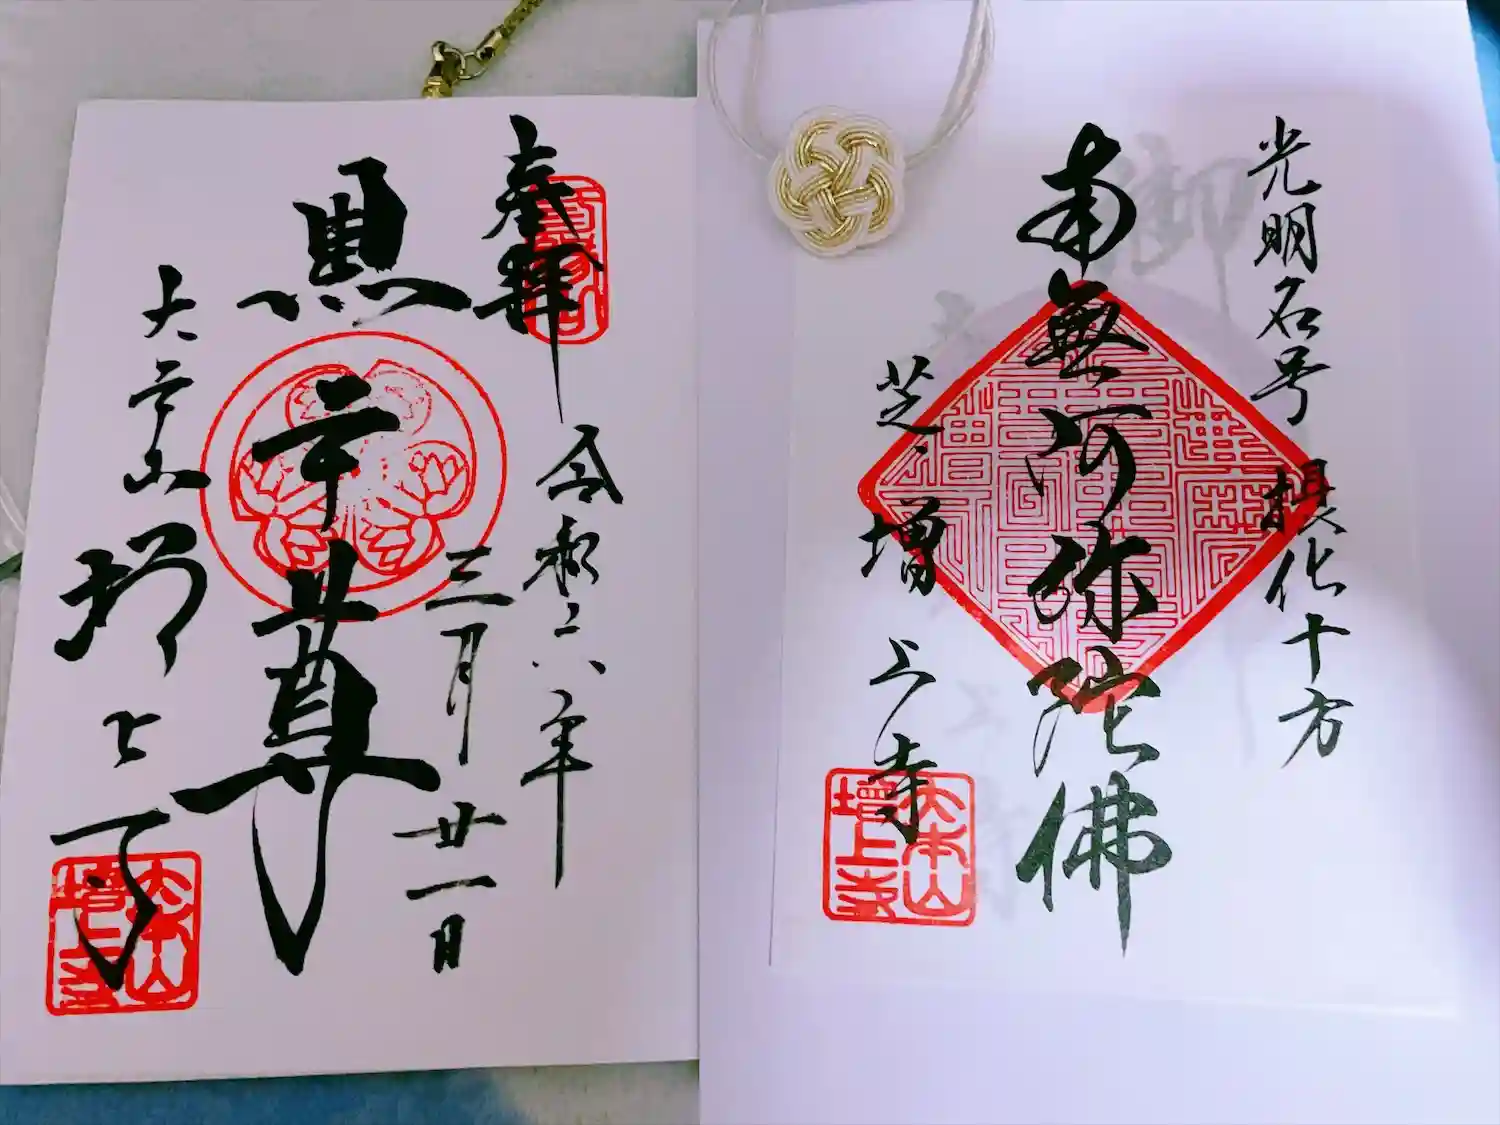 奉拝
令和六年
三月廿一日
黒本尊
大本山
増上寺
大本山
増上寺
光明名号 摂化十方
南無阿弥陀佛
芝 増上寺
大本山
増上寺